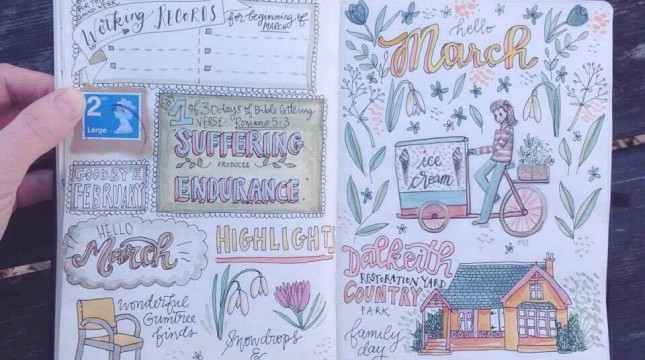 Working RECORDS
for beginning of
MARCH
2
Large
1 of 30 days of Bible lettering
VERSE: Romans 5:3
SUFFERING
PRODUCES
ENDURANCE
GOODBYE
FEBRUARY
HELLO
March
HIGHLIGHTS
wonderful
Gumtree
finds
Snowdrops
&
hello
March
ice
cream
Dalkeith
RESTORATION YARD
COUNTRY
PARK
family
day